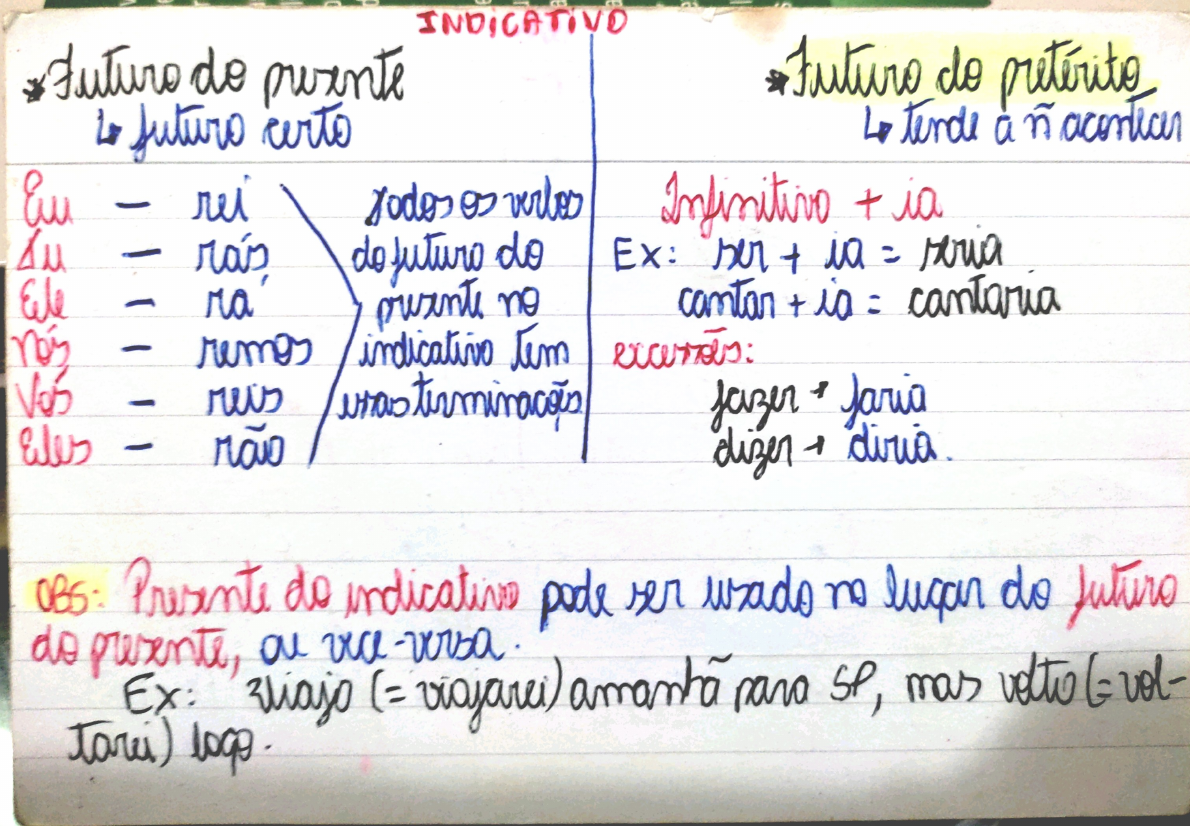 INDICATIVO
*Futuro do presente
↳ futuro certo
Eu — rei
Tu — rás
Ele — rá
Nós — remos
Vós — reis
Eles — rão
Todos os verbos
do futuro do
presente no
indicativo tem
essas terminações
*Futuro do pretérito
↳ tende a ñ acontecer
Infinitivo + ia
Ex: ser + ia = seria
cantar + ia = cantaria
excessões:
fazer → faria
dizer → diria.
OBS: Presente do indicativo pode ser usado no lugar do futuro
do presente, ou vice-versa.
Ex: Viajo (= viajarei) amanhã para SP, mas volto (= vol-
tarei) logo.